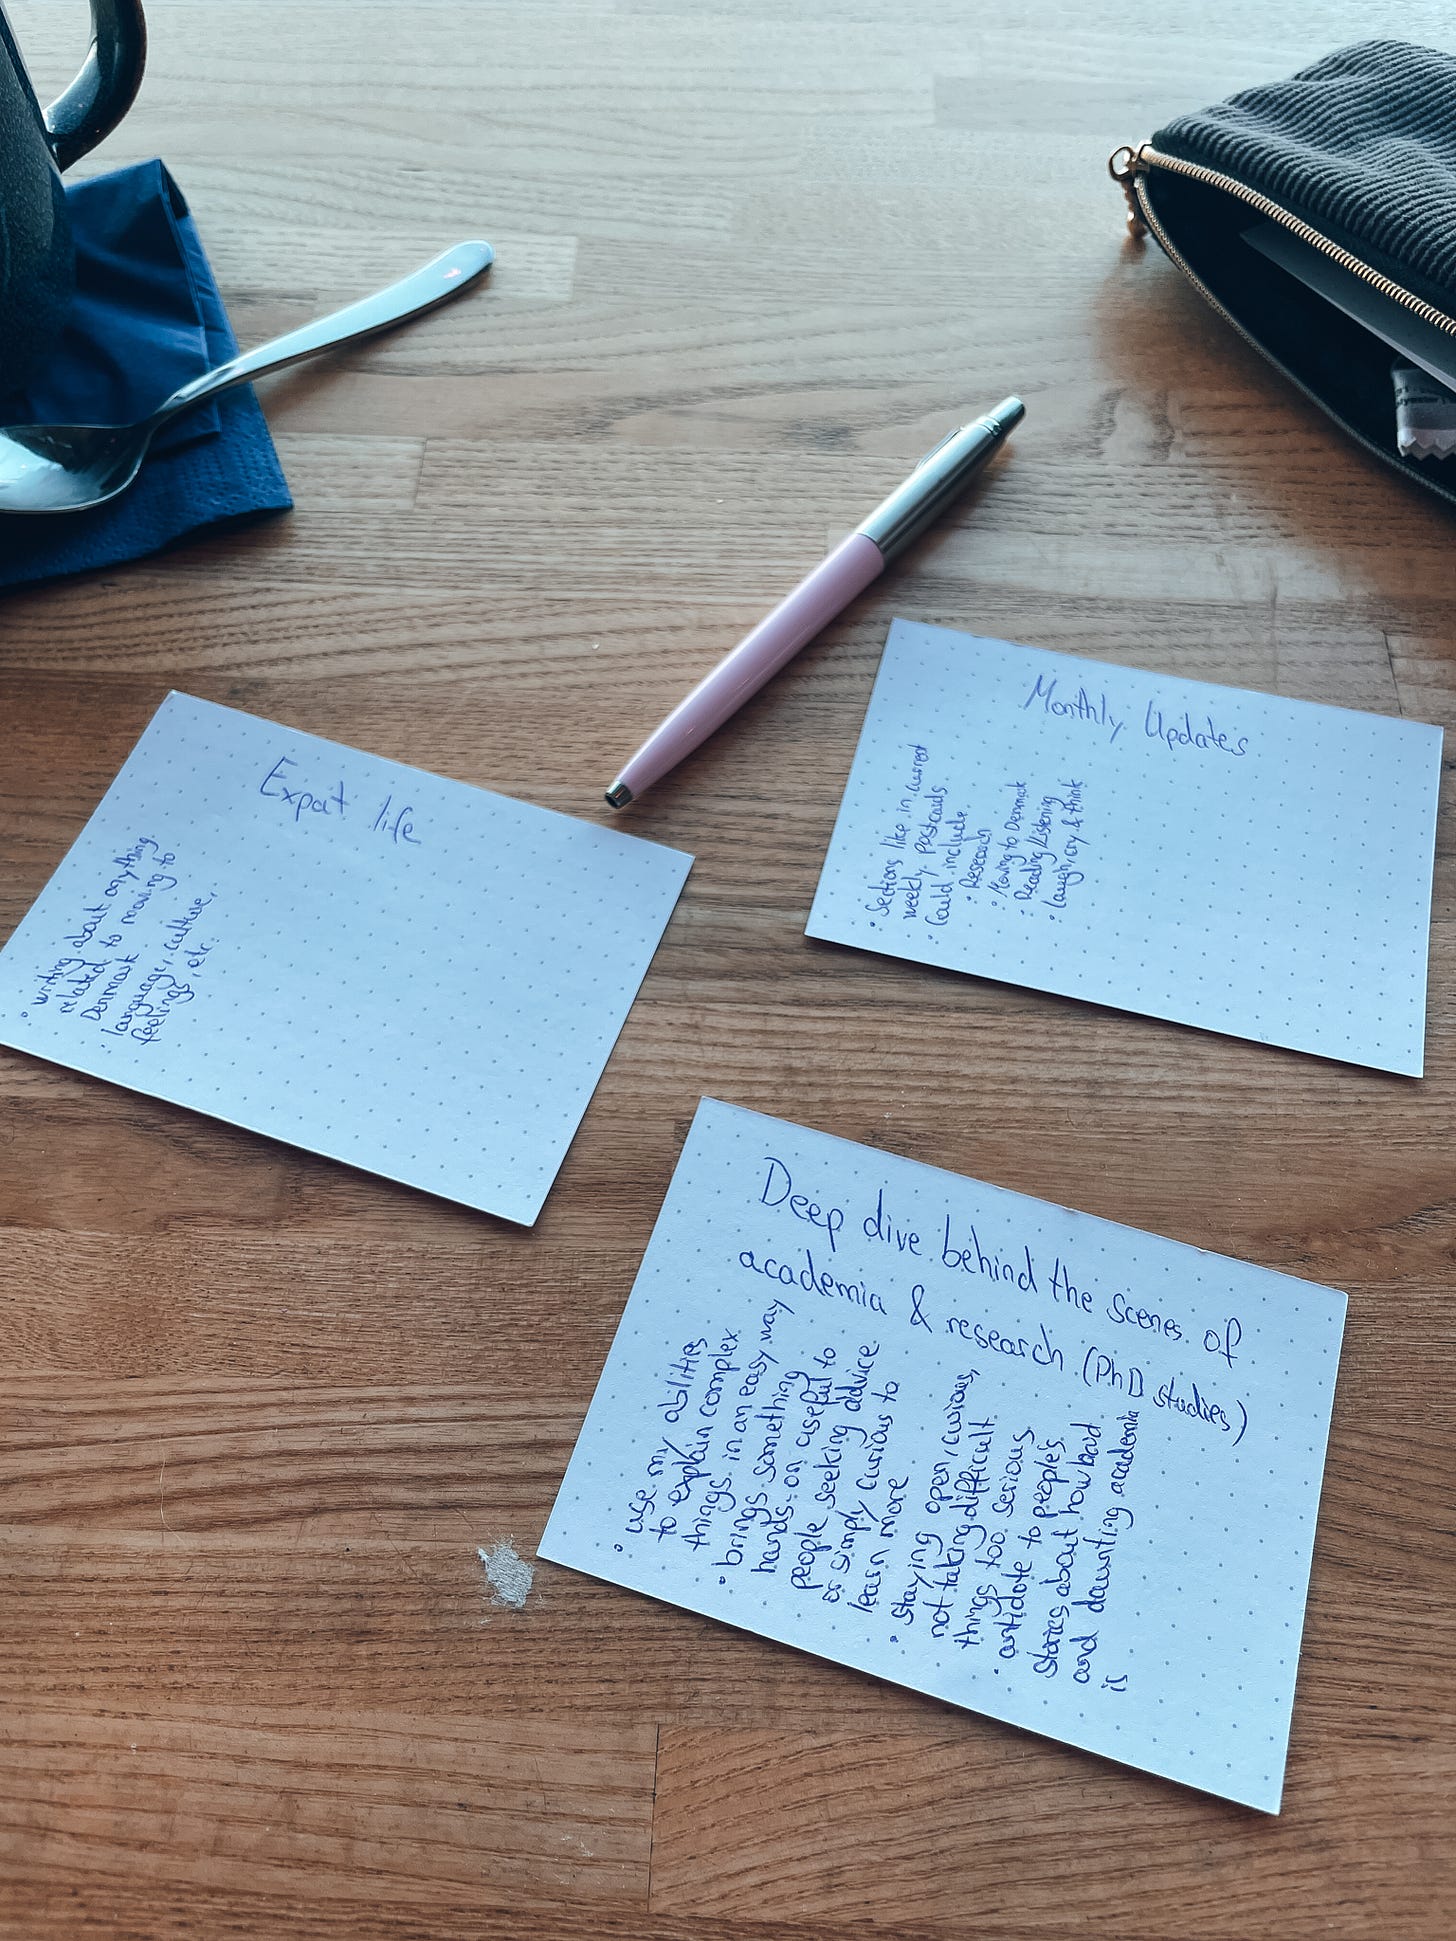 Expat life
• writing about anything
related to moving to
Denmark
• language, culture,
feelings, etc.
Monthly Updates
• Sections like in current
weekly postcards
• Could include
• Research
• Moving to Denmark
• Reading/Listening
• laugh, cry & think
Deep dive behind the scenes of
academia & research (PhD studies)
• use my abilities
to explain complex
things in an easy way
• brings something
hands-on useful to
people seeking advice
or simply curious to
learn more
• staying open, curious,
not taking difficult
things too serious
• antidote to people's
stories about how hard
and daunting academia
is